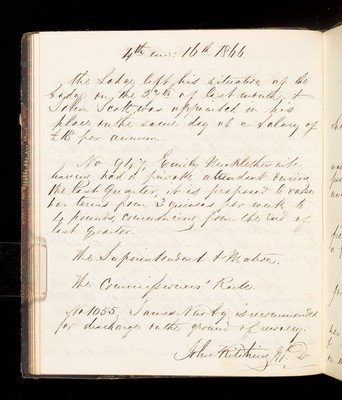 4th mo: 16th 1866
the Lodge left his situation at the
Lodge on the 3rd of last month, &
John Scott was appointed in his
place on the same day at a Salary of
£18 per annum
No 947 Emily Micklethwaite
having had a private attendant during
the last Quarter, it is proposed to raise
her terms from 3 guineas per week to
4 pounds, commencing from the end of
last quarter.
the Superintendent & Matron.
the Commissioners' Rule.
No 1055, James is recommended
for discharge on the ground of recovery.
John Kitching M.D.